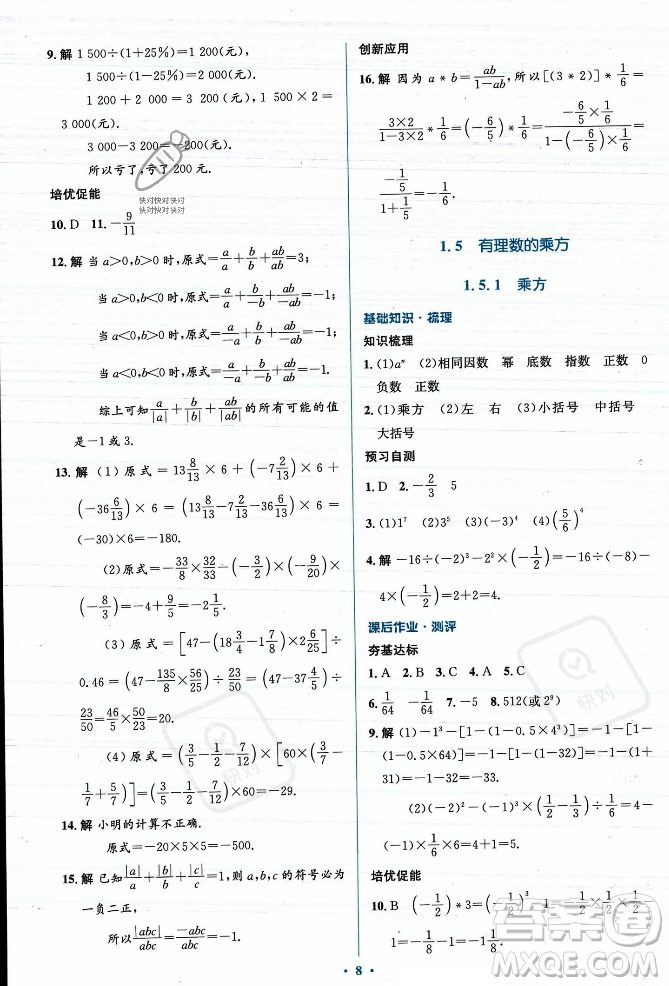 9. 解 1 500÷(1+25%)=1 200(元).
1 500÷(1-25%)=2 000(元).
1 200 + 2 000 - 1 500 × 2 =
3 000(元).
3 000-3 200=-200(元).
所以亏了,亏了 200 元.
培优促能
快对快对快对
快对快对快对
10. D 11. -9/11
12. 解 当 a>0,b>0 时,原式=a/a+b/b+ab/ab=3;
当 a>0,b<0 时,原式=a/a+b/-b+ab/-ab=-1;
当 a<0,b>0 时,原式=a/-a+b/b+ab/-ab=-1;
当 a<0,b<0 时,原式=a/-a+b/-b+ab/ab=-1.
综上可知a/|a|+b/|b|+ab/|ab|的所有可能的值
是-1 或 3.
13. 解 (1) 原式=13 8/13×6+(-7 7/13)×6+
(-36 6/13)×6=(13 8/13-7 7/13-36 6/13)×6=
(-30)×6=-180.
(2)原式=-33/8×32/33-(-9/20)×(-20/9)×
(-8/3)=-4+8/3=
(3) 原式=[47-(18 3/4-1 7/8)×56/25]÷
0.46=(47-135/8×56/25)÷23/50=(47-
×50/23=
(4) 原式=(3/5-1/2-7/12)×[60×(3/7-
1/7+5/7)]=(3/5-1/2-7/12)×60=-29.
14. 解 小明的计算不正确.
原式=-20×5×5=-500.
15. 解 已知|a|/a+|b|/b+|c|/c=1,a,b,c 的符号必为
一负二正,
所以|abc|/abc=-abc/abc=-1.
创新应用
16. 解 因为 a*b=ab/1-ab,所以[(3*2)]*1/6=
3×2/1-3×2*1/6=(-6/5)*1/6=-6/5×1/6/1-(-6/5)×1/6=
-1/5/1+1/5=-1/6.
1.5 有理数的乘方
1.5.1 乘方
基础知识·梳理
知识梳理
1. (1)aⁿ (2)相同因数 幂 底数 指数 正数 0
负数 正数
2. (1)乘方 (2)左 右 (3)小括号 中括号
大括号
预习自测
1. D 2. -2/3 5
3. (1)1⁷ (2)3⁴ (3)(-5)⁴ (4)(5/6)⁴
4. 解 -16÷(-2)³-2²×(-1/2)=-16÷(-8)-
4×(-1/2)=2+2=4.
课后作业·测评
夯基达标
1. A 2. B 3. C 4. C 5. C
6. 1/64 -1/64 7. -5 8. 512(或 2⁹)
9. 解 (1)-1-[1-(1-0.5×4³)]=-1-[1-
(1-0.5×64)]=-1-[1-(1-32)]=-1-(1+
31)=-33.
(2)(-2)²-(-1)³×(1/2-1/3)÷1/6-1/2=4-
(-1)×1/6×6-1=4+1=
培优促能
10. B (-1/2)*3=(-1/2)³-1=-1/2×1/2×1/2-
1=-1/8-1=-9/8
答案圈
MXQE.COM
8